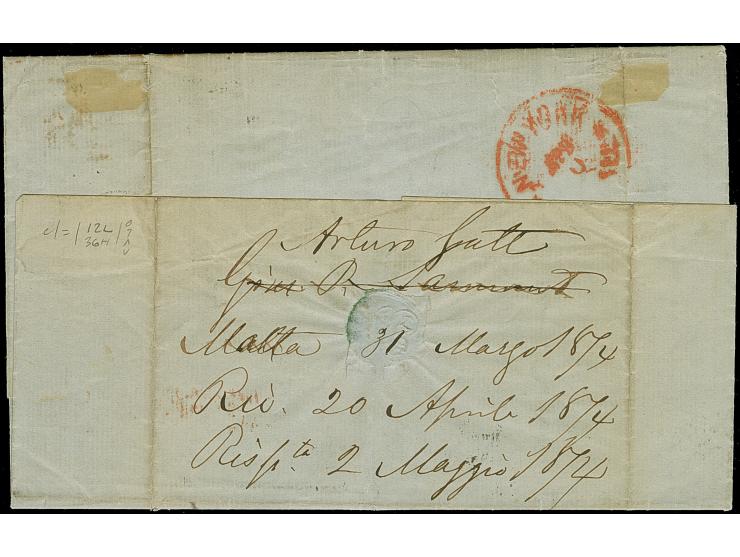 NEW YORK
c/= | 12L
36H
Arturo Gatt
Malta 31 Marzo 1874
Rei. 20 Aprile 1874
Rispta 2 Maggio 1874